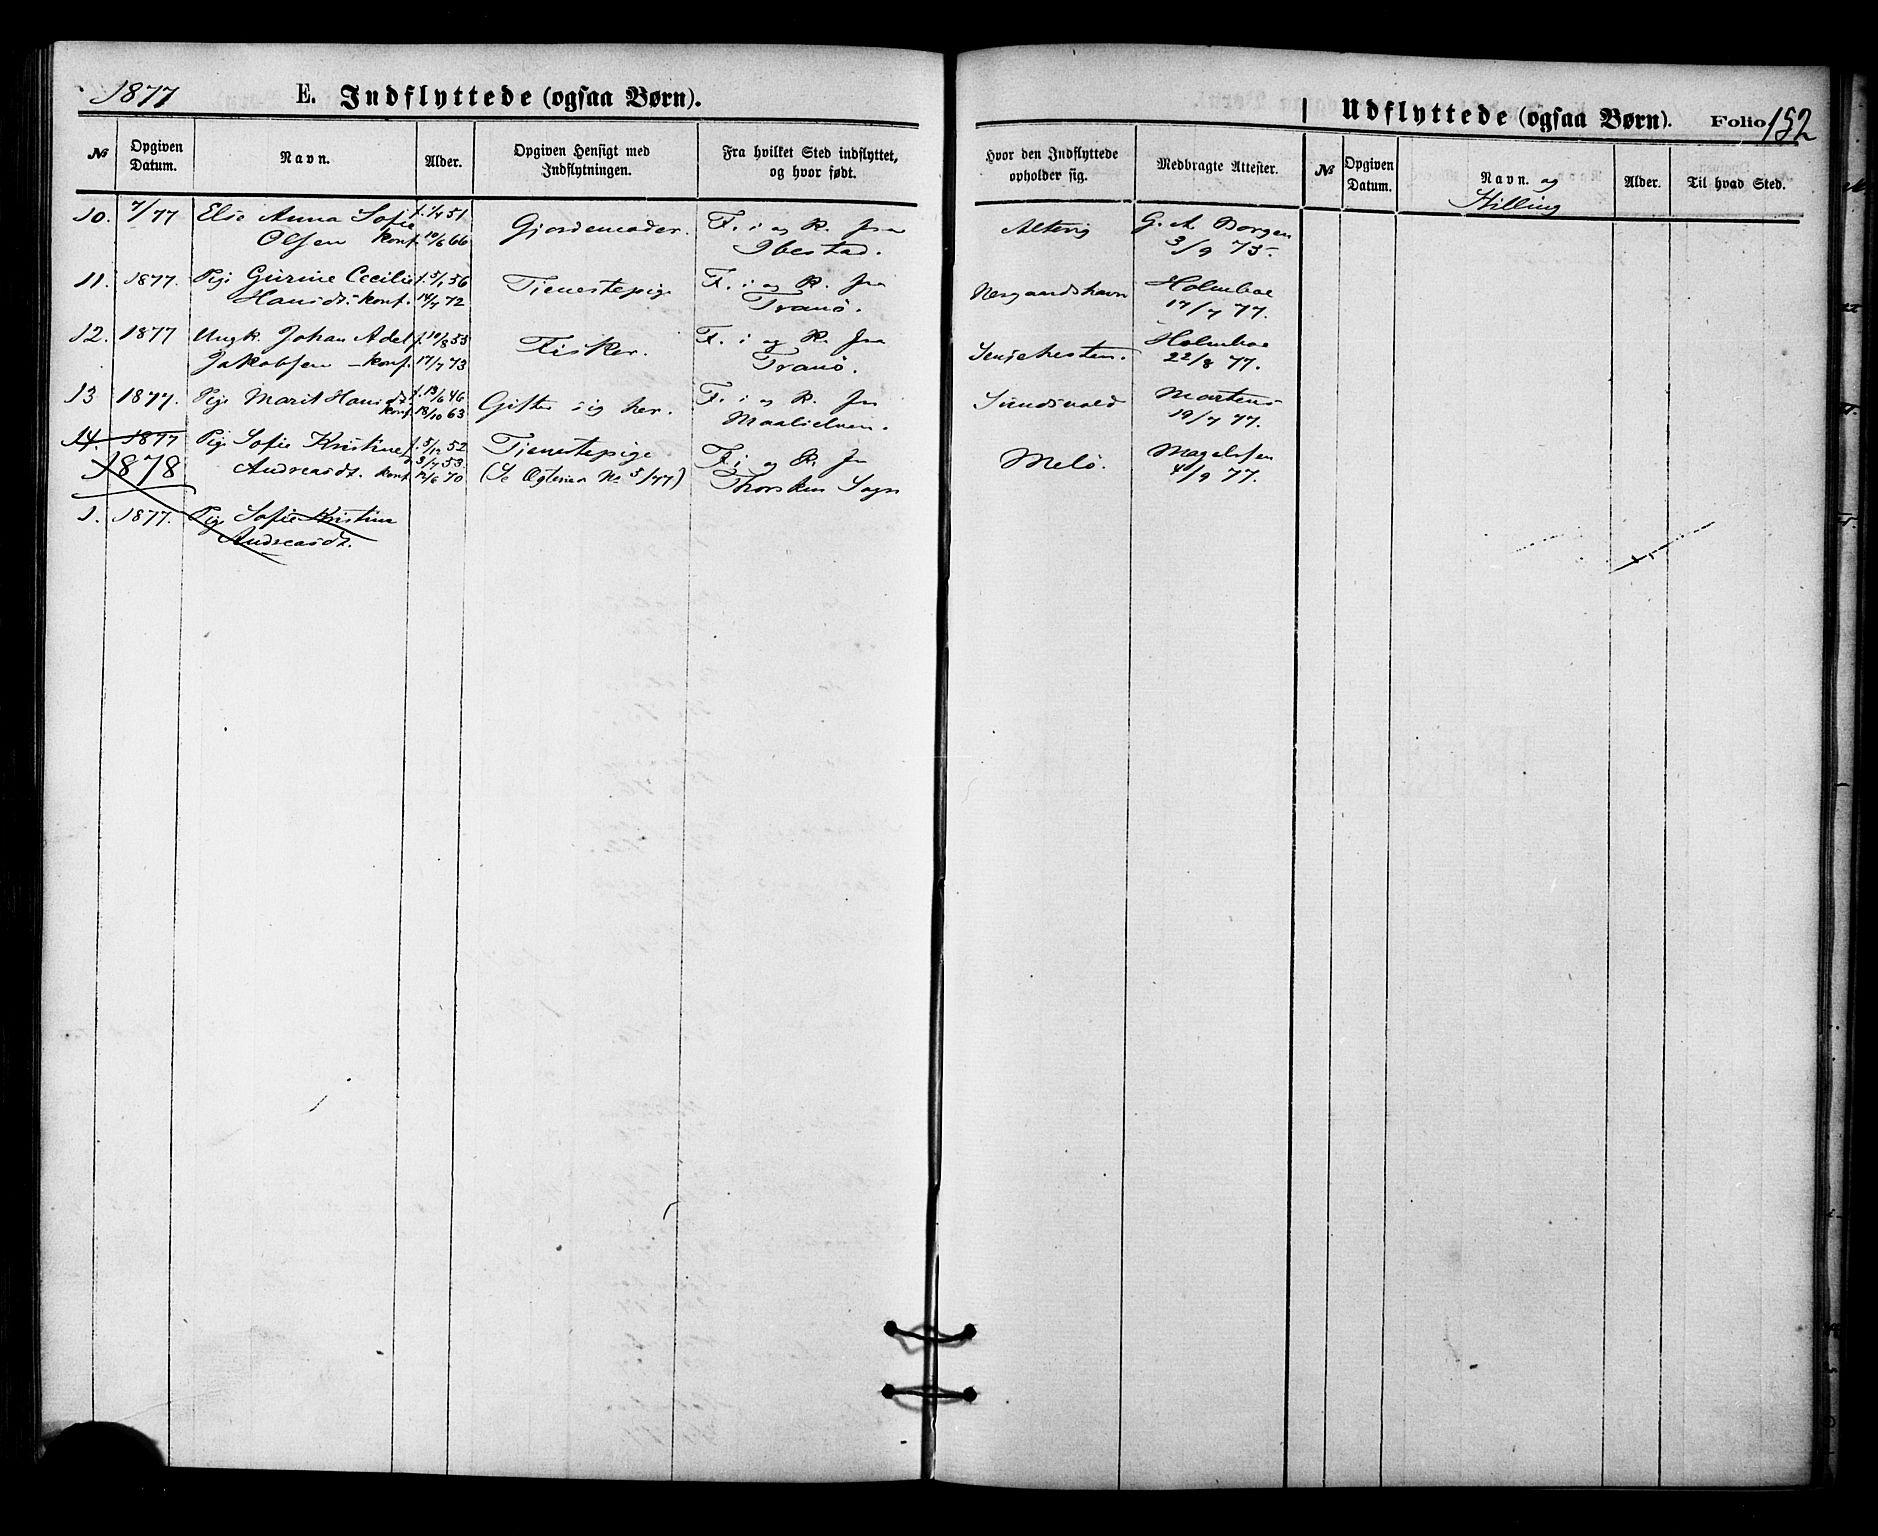 1877 E. Indflyttede (ogsaa Børn).
Udflyttede (ogsaa Børn). Folio 152
№ Opgiven Datum. Navn. Alder. Opgiven Hensigt med Indflytningen. Fra hvilket Sted indflyttet, og hvor født. Hvor den Indflyttede opholder sig. Medbragte Attester. № Opgiven Datum. Navn. og Stilling Alder. Til hvad Sted.
10. 7/77 Else Anna Sofie f. 1/4 51 Gjordemoder. F. i og R. fra Altevig G. A. Borgen
Olsen konf. 10/6 66 Ibestad. 3/9 75.
11. 1877. Pige Gurine Cecilie f. 5/1 56 Tienestepige F. i og R. fra Holmboe
Hansdt. konf. 14/7 72 Tranø. 17/7 77.
12. 1877 Ungk. Johan Adel f. 10/8 53 Fisker. F. i og R. fra Senjehesten. Holmboe
Jakobsen - konf. 17/7 73 Tranø. 22/8 77.
13 1877. Pige Marit Hansdt. f. 13/6 46 Gifter sig her. F. i og R. fra Sundsvold Martens
konf. 18/10 63 Maalselven. 19/7 77.
14. 1877 Pige Sofie Kristine f. 5/12 52 Tienestepige F. i og R. fra Melø. Magelssen
1878 Andreasdt. konf. 12/6 70 (Se No 5/77) Thorsken Sogn 4/9 77.
1. 1877. Pige Sofie Kristina
Andreasdt.